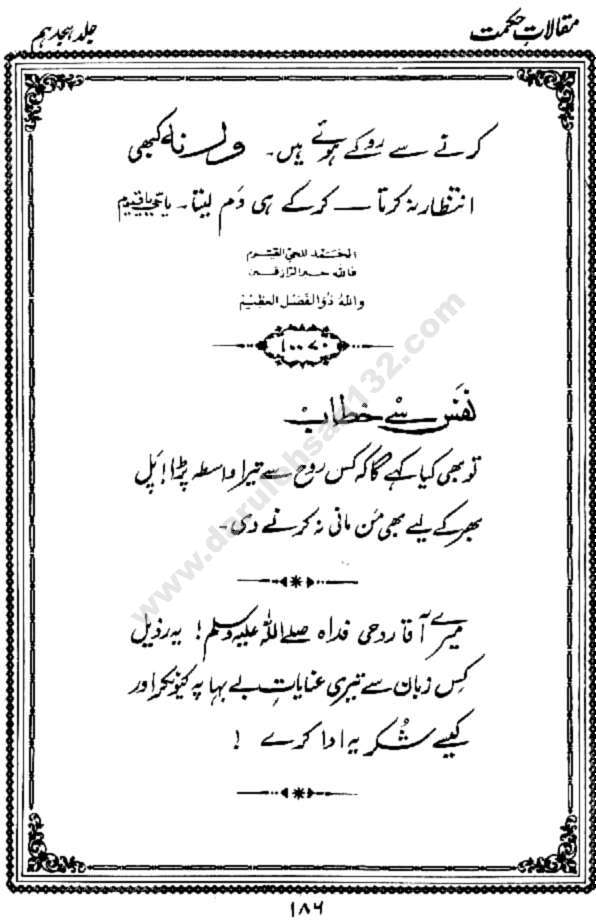 مقالاتِ حکمت
جلد ہجدہم
کرنے سے روکے ہوئے ہیں۔ ورنہ کبھی
انتظار نہ کرتا — کرکے ہی دَم لیتا۔ یاحیی یاقیوم
الحَمَد للحیّ القیّوم
فاللہ خیر الرازقین
واللہُ ذُوالفَضْلِ العَظِیْمِ
۱۰۰۷۰
نفس سے خطاب
تو بھی کیا کہے گا کہ کس روح سے تیرا واسطہ پڑا! پَل
بھر کے لیے بھی مَن مانی نہ کرنے دی۔
میرے آقا روحی فداہ صلے اللہ علیہ وسلم! یہ رذیل
کِس زبان سے تیری عنایاتِ بے بہا پہ کیونکر اور
کیسے شکریہ ادا کرے !
۱۸۶
www.darulehsan132.com